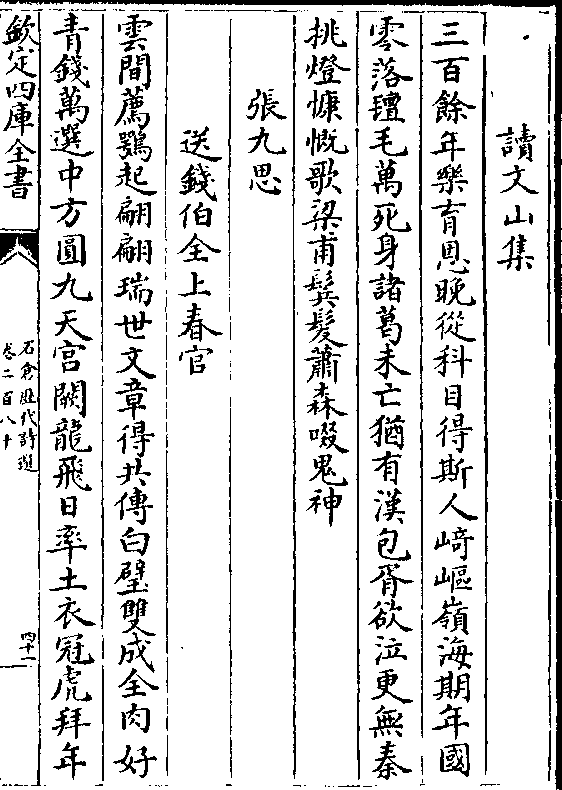 讀文山集
三百餘年樂育恩晚從科目得斯人崎嶇嶺海期年國
零落氊毛萬死身諸葛未亡猶有漢包胥欲泣更無秦
挑燈慷慨歌梁甫鬂髮蕭森啜鬼神
張九思
送錢伯全上春官
雲間薦鶚起翩翩瑞世文章得共傳白璧雙成全肉好
青錢萬選中方圓九天宮闕龍飛日率土衣冠虎拜年
欽定四庫全書
石倉歷代詩選
卷二百八十
四十一